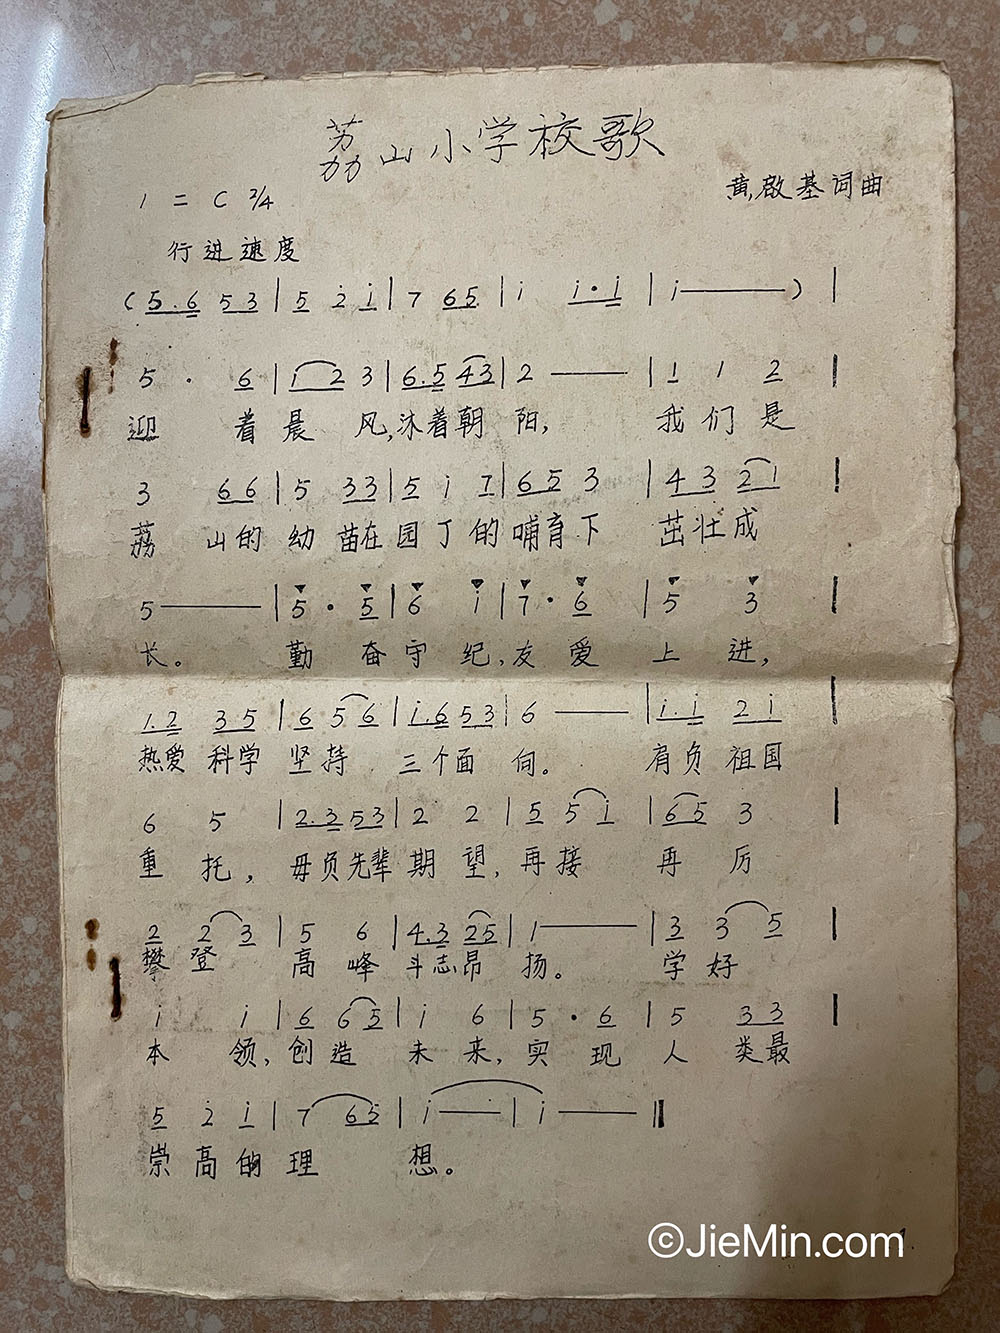 荔山小学校歌
黄啟基词曲
1 = C 2/4
行进速度
( 5.6 5 3 | 5 2̇ i̇ | 7 6 5 | i̇ i̇·i̇ | i̇ — ) |
5 · 6 | i̇ 2 3 | 6.5 4 3 | 2 — | 1 1 2 |
迎着晨风,沐着朝阳,我们是
3 6 6 | 5 3 3 | 5 i 7 | 6 5 3 | 4 3 2 1 |
荔山的幼苗在园丁的哺育下茁壮成
5 — | 5 · 5 | 6 i̇ | 7 · 6 | 5 3 |
长。勤奋守纪,友爱上进,
1.2 3 5 | 6 5 6 | i̇.6 5 3 | 6 — | i̇.i̇ 2 i̇ |
热爱科学坚持三个面向。肩负祖国
6 5 | 2.3 5 3 | 2 2 | 5 5 i | 6 5 3 |
重托,毋负先辈期望,再接再厉
2 2 3 | 5 6 | 4.3 2 5 | 1 — | 3 3 5 |
攀登高峰斗志昂扬。学好
i̇ i̇ | 6 6 5 | i̇ 6 | 5 · 6 | 5 3 3 |
本领,创造未来,实现人类最
5 2̇ i̇ | 7 6 5 | i̇ — | i̇ — ‖
崇高的理想。
©JieMin.com
1.